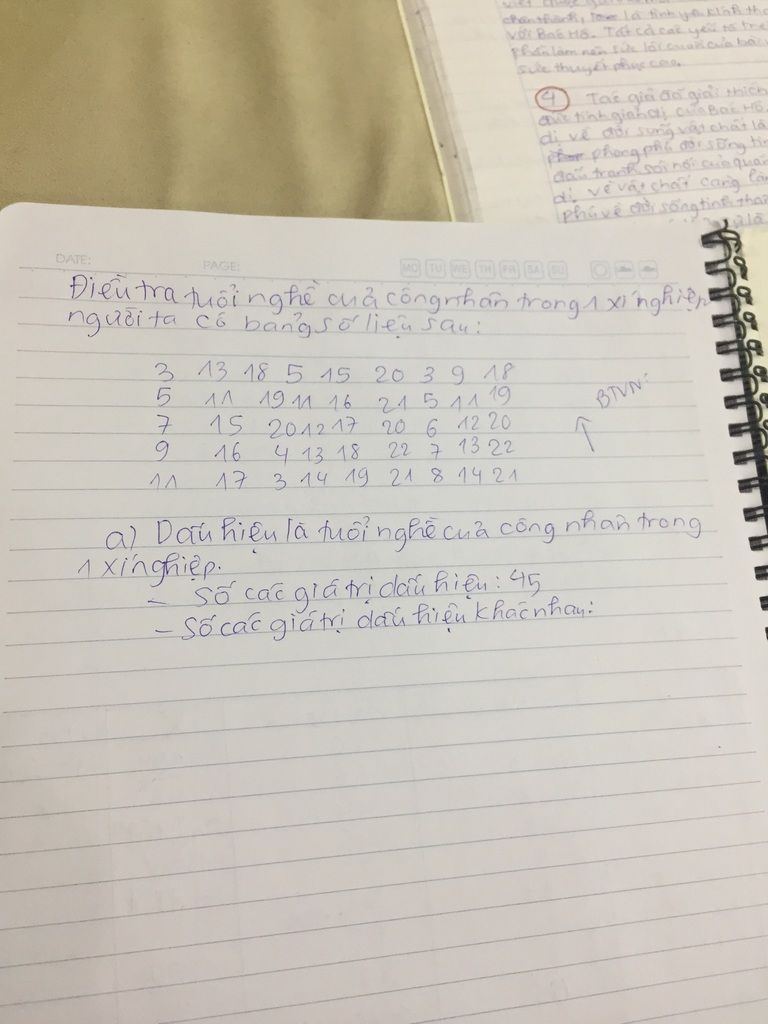 viết được
chân thành, là tình yêu kính
với Bác Hồ. Tất cả các yếu tố
phần làm nên sức lôi cuốn của bài
sức thuyết phục cao.
4 Tác giả đã giải thích
đức tính giản dị của Bác Hồ.
dị về đời sống vật chất là
phong phú đời sống
đấu tranh sôi nổi của quần
dị về vật chất càng làm
phú về đời sống tinh
DATE: PAGE: MO TU WE TH FR SA SU
Điều tra tuổi nghề cuả công nhân trong 1 xí nghiệp
người ta có bảng số liệu sau:
3 13 18 5 15 20 3 9 18
5 11 19 11 16 21 5 11 19
7 15 20 12 17 20 6 12 20
9 16 4 13 18 22 7 13 22
11 17 3 14 19 21 8 14 21
BTVN:
a) Dấu hiệu là tuổi nghề cuả công nhân trong
1 xí nghiệp.
- Số các giá trị dấu hiệu: 45
- Số các giá trị dấu hiệu khác nhau: